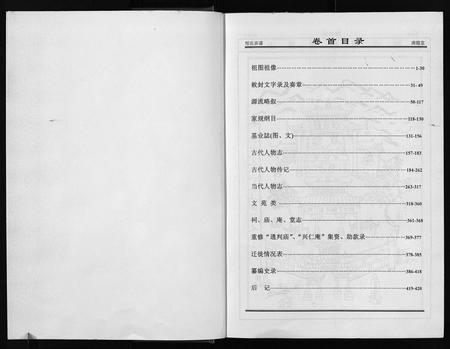 卷首目录
祖图祖像 1-30
敕封文字录及奏章 31-49
源流略叙 50-117
家规纲目 118-130
墓业誌(图、文) 131-156
古代人物志 157-183
古代人物传记 184-262
当代人物志 263-317
文苑类 318-360
祠、庙、庵、堂志 361-368
重修“通判庙”、“兴仁庵”集资、助款录 369-377
迁徙情况表 378-385
纂编史录 386-418
后记 419-420